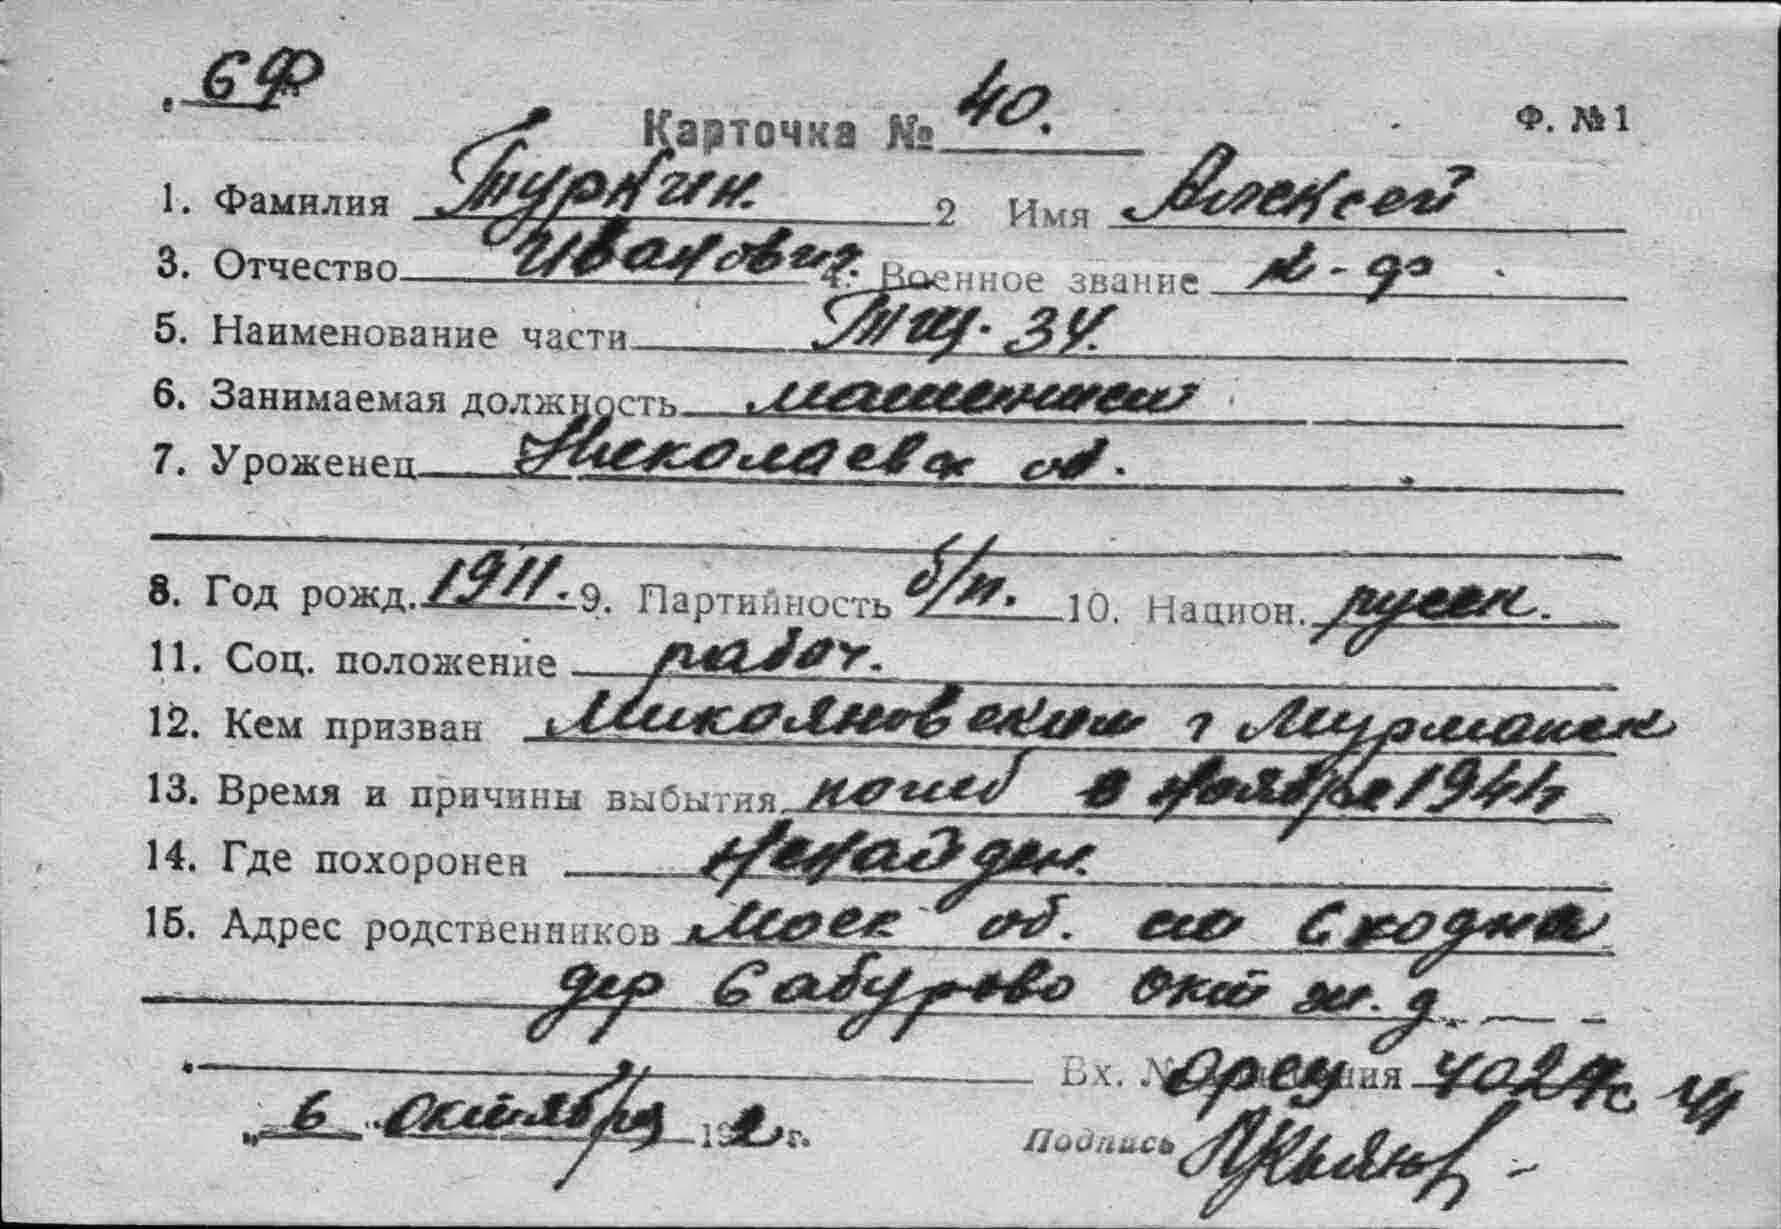 6 Ф
Карточка № 40. Ф. №1
1. Фамилия Туркин. 2 Имя Алексей
3. Отчество Иванович. 4. Военное звание к-ф
5. Наименование части Тщ. 34.
6. Занимаемая должность машинист
7. Уроженец Николаевск об.
8. Год рожд. 1911. 9. Партийность б/п. 10. Национ. русск.
11. Соц. положение рабоч.
12. Кем призван Микояновским г Мурманск
13. Время и причины выбытия погиб в ноябре 1941г
14. Где похоронен ненайден.
15. Адрес родственников Моск об. ст Сходня
дер Сабурово Окт ж. д.
Вх. № 4024с
„ 6 " октября 192 г. Подпись